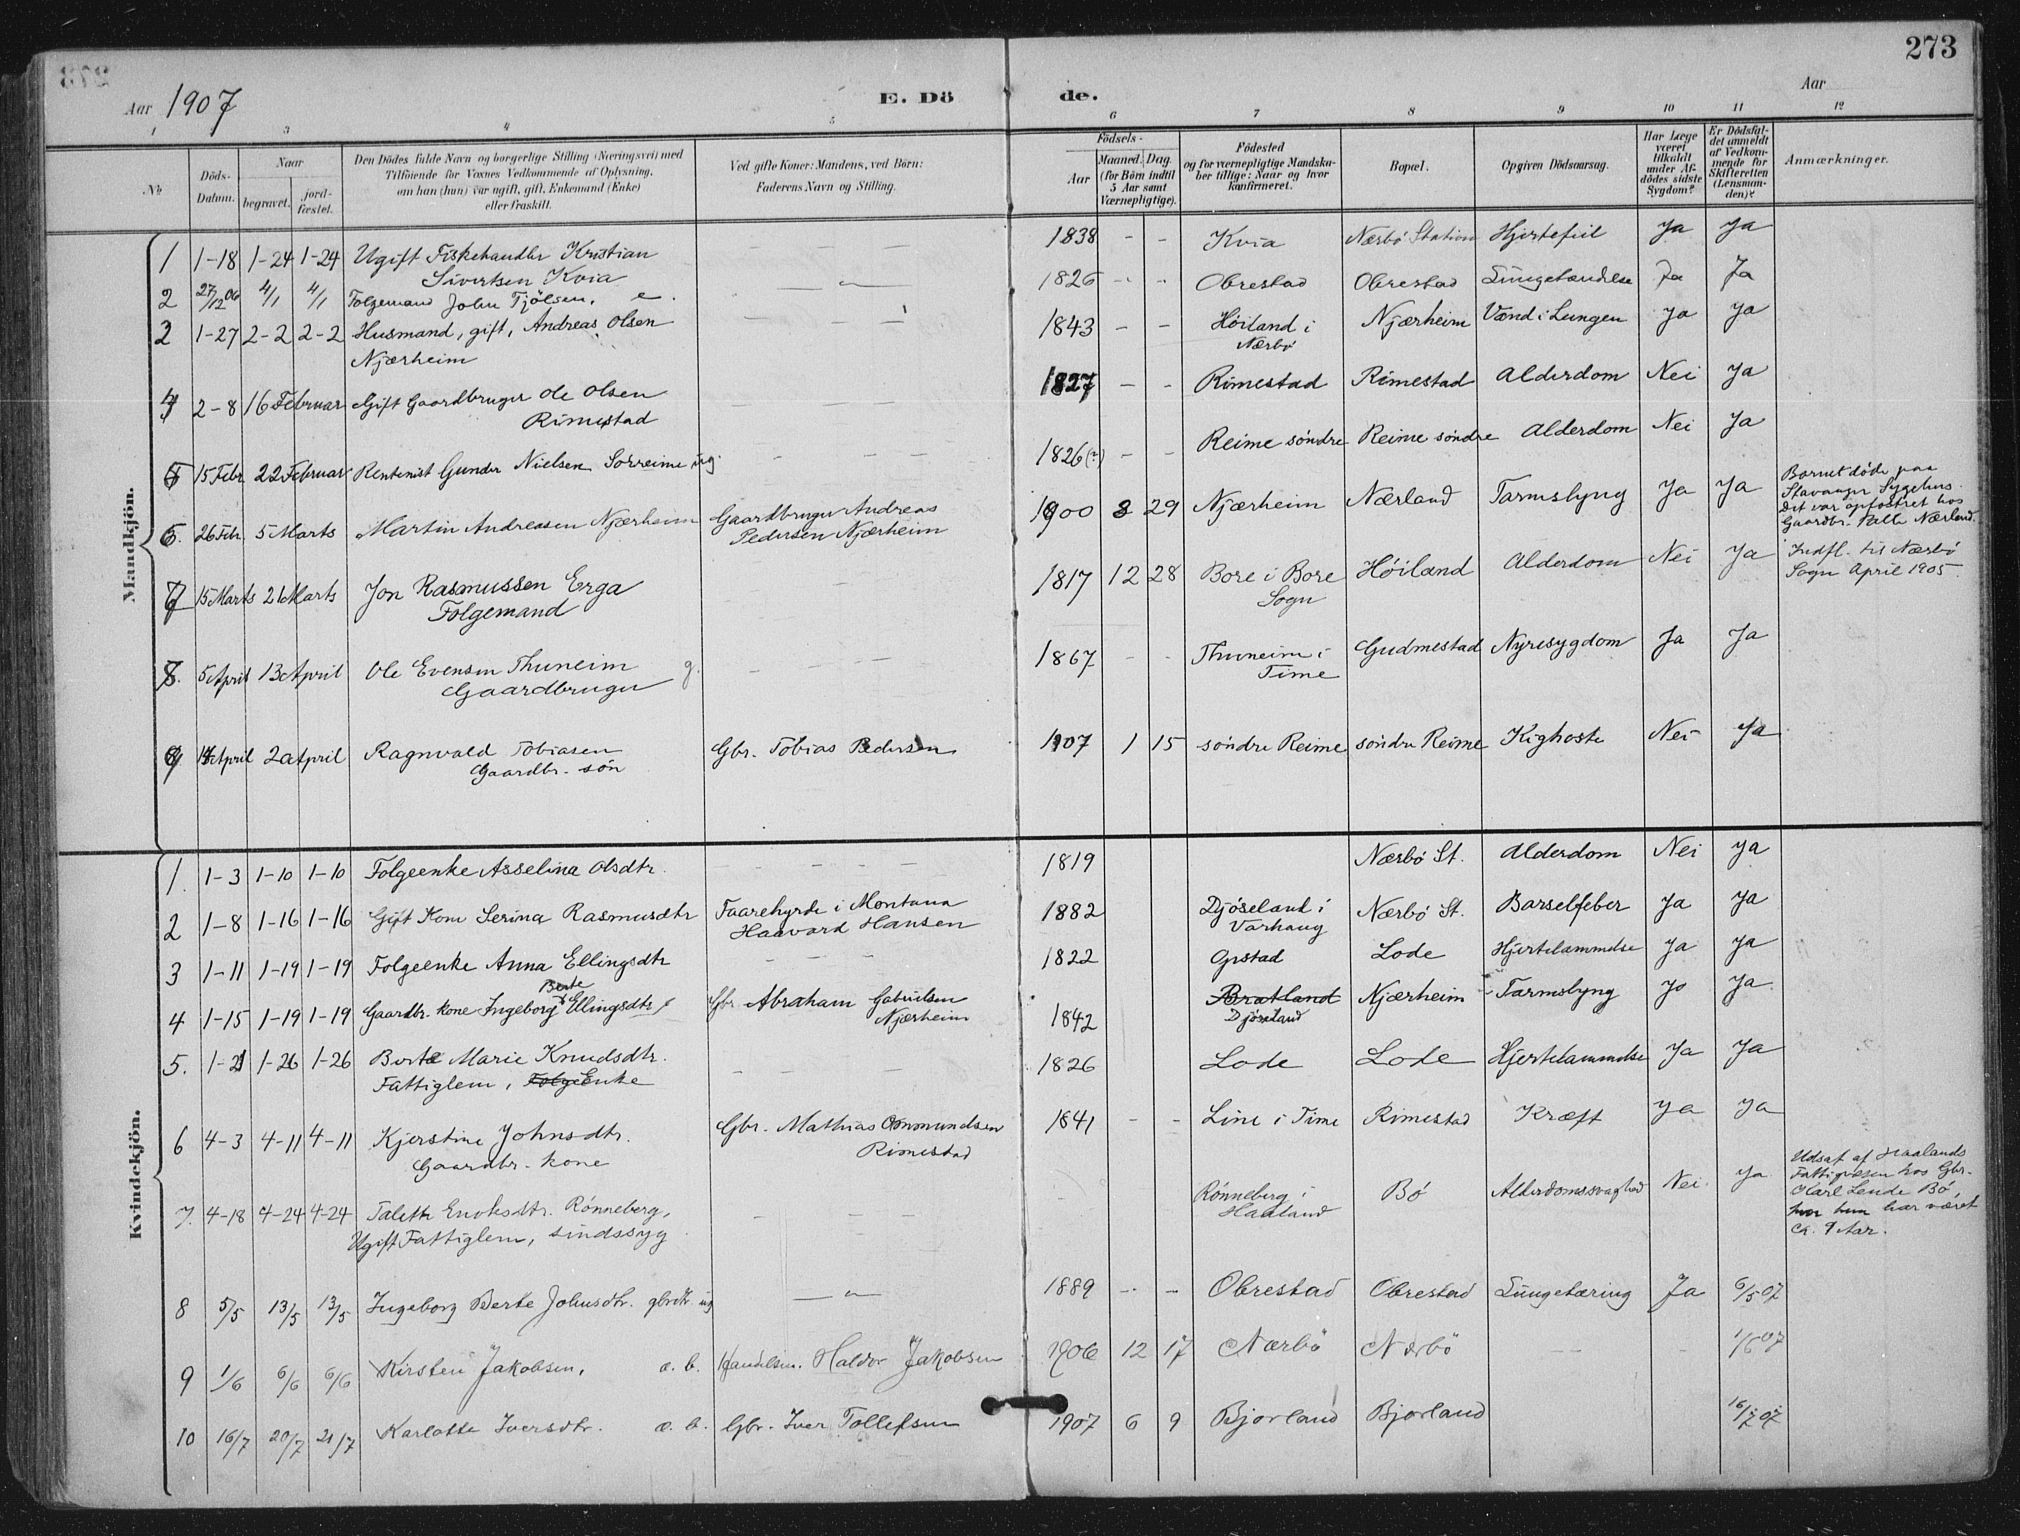 273
Aar 1907
E. Dö
de.
Aar
1 3 4 5 6 7 8 9 10 11 12
No
Döds-
Datum.
Naar
begravet.
jord-
fæstet.
Den Dödes fulde Navn og borgerlige Stilling (Næringsvei) med
Tilföiende for Voxnes Vedkommende af Oplysning,
om han (hun) var ugift, gift, Enkemand (Enke)
eller fraskilt.
Ved gifte Koner: Mandens, ved Börn:
Faderens Navn og Stilling.
Födsels-
Aar
Maaned. Dag.
(for Börn indtil
5 Aar samt
Værnepligtige).
Födested
og for værnepligtige Mandska-
ber tillige: Naar og hvor
konfirmeret.
Bopæl.
Opgiven Dödsaarsag.
Har Læge
været
tilkaldt
under Af-
dödes sidste
Sygdom?
Er Dödsfal-
det anmeldt
af Vedkom-
mende for
Skifteretten
(Lensman-
den)?
Anmærkninger.
Mandkjön.
1 1-18 1-24 1-24 Ugift Fiskehandler Kristian — — — 1838 - - Kvia Nærbö Station Hjertefeil Ja Ja
Sivertsen Kvia
2 27/12 06 4/1 4/1 Folgemand John Tjölsen, e. —„— 1826 - - Obrestad Obrestad Lungebetændelse Ja Ja
3 1-27 2-2 2-2 Husmand, gift, Andreas Olsen — — — 1843 - - Höiland i Njærheim Vand i Lungen Ja Ja
Njærheim
Nærbö
4 2-8 16 Februar Gift Gaardbruger Ole Olsen — — — 1827 - - Rimestad Rimestad Alderdom Nei Ja
Rimestad
5 15 Febr 22 Februar Rentenist Gunder Nielsen Sorreime ug. — — — 1826 (?) - - Reime söndre Reime söndre Alderdom Nei Ja
6. 26 Febr. 5 Marts Martin Andreasen Njærheim Gaardbruger Andreas 1900 8 29 Njærheim Nærland Tarmslyng Ja Ja
Pedersen Njærheim
Barnet døde paa
Stavanger Sygehus.
Det var opfostret hos
Gaardbr. Nærland.
7 15 Marts 21 Marts Jon Rasmussen Erga — — — 1817 12 28 Bore i Bore Höiland Alderdom Nei Ja Indfl. til Nærbö
Folgemand
Sogn
Sogn April 1905.
8. 5 April 13 April Ole Evensen Thuneim g. — — — 1867 - - Thuneim i Gudmestad Nyresygdom Ja Ja
Gaardbruger
Time
9 April 2 April Ragnvald Tobiasen Gbr. Tobias Pedersen 1907 1 15 söndre Reime söndre Reime Kighoste Nei Ja
Gaardbr. sön
Kvindekjön.
1. 1-3 1-10 1-10 Folgeenke Asselina Olsdtr. — — — 1819 Nærbö St. Alderdom Nei Ja
2 1-8 1-16 1-16 Gift Kone Serina Rasmusdtr Faarehyrde i Montana 1882 Djöseland i Nærbö St. Barselfeber Ja Ja
Haavard Hansen
Varhaug
3 1-11 1-19 1-19 Folgeenke Anna Ellingsdtr — — — 1822 Opstad Lode Hjertelammelse Ja Ja
Berte
4 1-15 1-19 1-19 Gaardbr. kone Ingeborg Ellingsdtr Gbr. Abraham Gabrielsen 1842 Bratland Njærheim Tarmslyng Ja Ja
Njærheim
Djöseland
5. 1-21 1-26 1-26 Berte Marie Knudsdtr. — — — 1826 Lode Lode Hjertelammelse Ja Ja
Fattiglem, Folge Enke
6 4-3 4-11 4-11 Kjerstine Johnsdtr. Gbr. Mathias Ommundsen 1841 - - Line i Time Rimestad Kræft Ja Ja
Gaardbr. kone
Rimestad
7. 4-18 4-24 4-24 Talette Enoksdtr. Rönneberg, — — — Rönneberg i Bö Alderdomssvaghed Nei Ja
Ugift Fattiglem, sindssyg
Haaland
Udsat af Haalands
Fattigvæsen hos Gbr.
Karl Lende Bö,
hvor hun har været
ca. 9 Aar.
8 5/5 13/5 13/5 Ingeborg Berte Johnsdtr. gbrdtr. ug —„— 1889 - - Obrestad Obrestad Lungetæring Ja 6/5 07
9 1/6 6/6 6/6 Kirsten Jakobsen, æ. b. Handelsm. Haldor Jakobsen 1906 12 17 Nærbö Nærbö — — 1/6 07
10 16/7 20/7 21/7 Karlotte Iversdtr. æ. b. Gbr. Iver Tollefsen 1907 6 9 Bjorland Bjorland 16/7 07